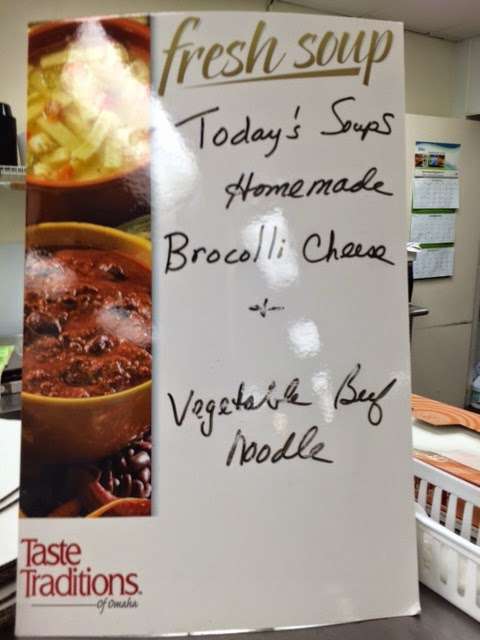 fresh soup
Today's Soups
Homemade
Brocolli Cheese
+
Vegetable Beef
Noodle
Taste
Traditions.
Of Omaha